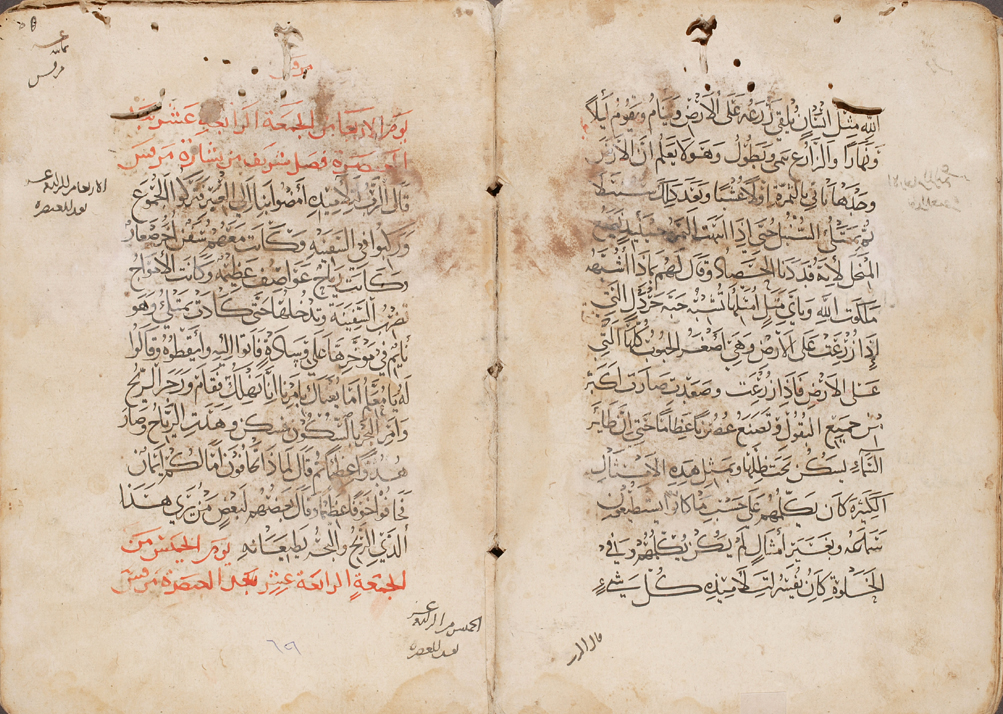 الله مثل انسان يلقي زرعه على الارض وينام ويقوم ليلاً
ونهاراً والزارع ينمى ويطول وهو لا يعلم ان الارض
وحدها تاتي بالثمرة اولاً عشبا وبعد ذلك سنبلا
ثم يمتلى السنبل حتى اذا
المنجل لانه قد دنا الحصاد وقال لهم بماذا اشبه
ملكوت الله وباي مثل امثلها تشبه حبة خردل التي
اذا زرعت على الارض وهي اصغر الحبوب كلها التي
على الارض فاذا زرعت وصعدت صارت اكبر
من جميع البقول وتصنع عظاما حتى ان طاير
السماء يسكن تحت ظلها وبمثل هذه الامثال
الكثيرة كان يكلمهم على حسب ما كانوا يستطيعون
سماعه وبغير امثال لم يكن يكلمهم وفي
الخلوة كان يفسر لتلاميذه كل شيء
قال الرب
مرقس
يوم الاربعا من الجمعة الرابعة عشر بعد
العنصرة فصل شريف من بشارة مرقس
قال الرب لتلاميذه امضوا بنا الى العبر فتركوا الجموع
وركبوا في السفينه وكانت معهم سفن اخر صغار
وكانت رياح عواصف عظيمه وكانت الامواج
تضرب السفينه وتدخلها حتى كادت تمتلي وهو
نايم في موخرها على وسادة فاتوا اليه وايقظوه وقالوا
له يا معلم اما يعنيك بامرنا اننا نهلك فقام وزجر الريح
وامر البحر بالسكون فسكن وهدت الرياح وصار
هدوا عظيما ثم قال لماذا تخافون اما لكم ايمان
فخافوا خوفا عظيما وقال بعضهم لبعض من ترى هذا
الذي الريح والبحر يطيعانه يوم الخميس من
الجمعة الرابعة عشر بعد العنصرة مرقس
مرقس
الاربعا من الرابعة عشر
بعد العنصره
الخميس من الرابعه عشر
بعد العنصره